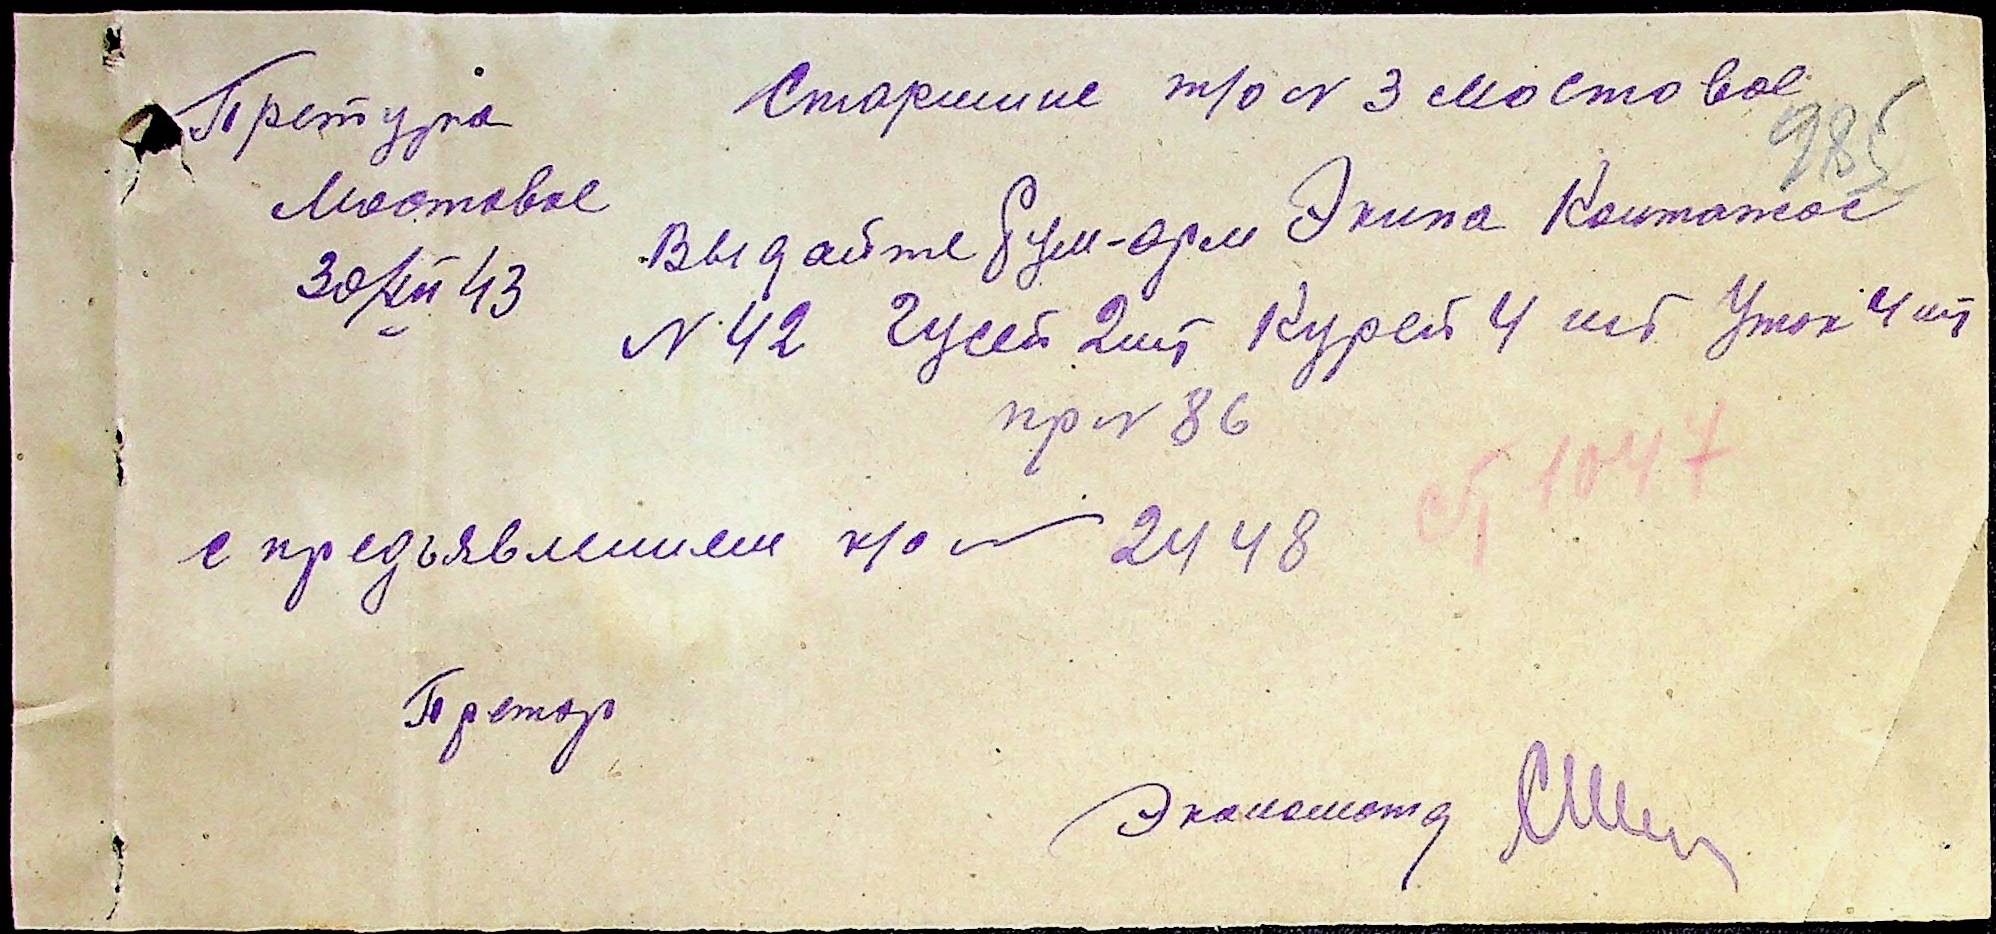 Претура
Мостовое
30/XII 43
Старшине т/о № 3 Мостовое
985
Выдайте Рум-арм Экипа Контатос
№ 42 Гусей 2 шт Курей 4 шт Уток 4 шт
пр № 86
ст 1047
с предъявлением н/о № 2448
Претор
Экономотд